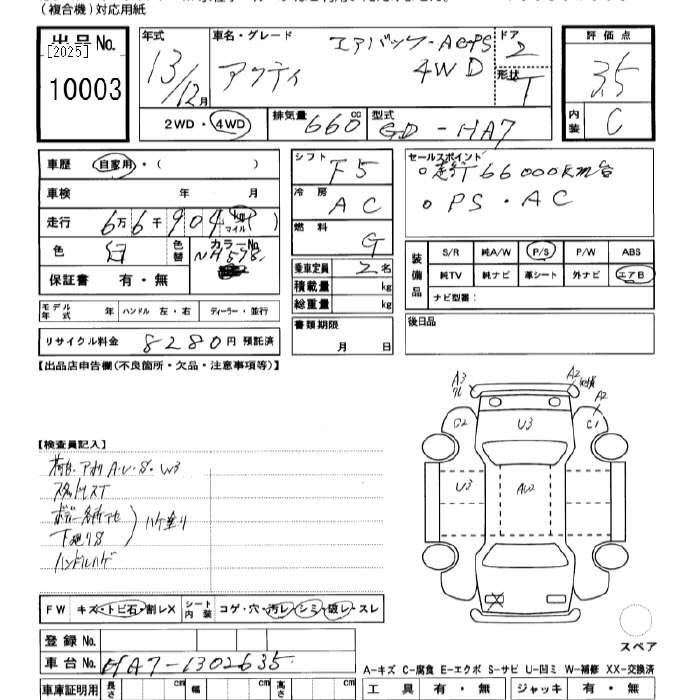 (複合機)対応用紙
出品No.
[2025]
10003
年式
13/12月
車名・グレード
エアバック-ACPS
アクティ 4WD
ドア
2
形状
T
評価点
3.5
内装
C
2WD・4WD
排気量
660cc
型式
GD-HA7
車歴 自家用・( )
車検 年 月
走行 6万6千904 km マイル ( )
色 白 色替 カラーNo. NH578
保証書 有・無
シフト F5
冷房 AC
燃料 G
乗車定員 2名
積載量 kg
総重量 kg
書類期限
月 日
セールスポイント
○走行66000km台
○PS・AC
装備品
S/R 純A/W P/S P/W ABS
純TV 純ナビ 革シート 外ナビ エアB
ナビ型番:
後日品
モデル年式 年 ハンドル 左・右 ディーラー・並行
リサイクル料金 8280円 預託済
【出品店申告欄(不良箇所・欠品・注意事項等)】
【検査員記入】
荷台.アオリA・U・S・W3
下廻りS
ハケ塗り
ハンドルハゲ
A3
A2
A2
G2
U3
C1
U3
AW2
X
FW キズ・トビ石・割レX
シート内装 コゲ・穴・汚レ・シミ・破レ・スレ
登録No.
車台No. HA7-1302635
車庫証明用 長さ cm 幅 cm 高さ cm
スペア
A-キズ C-腐食 E-エクボ S-サビ U-凹ミ W-補修 XX-交換済
工具 有・無 ジャッキ 有・無